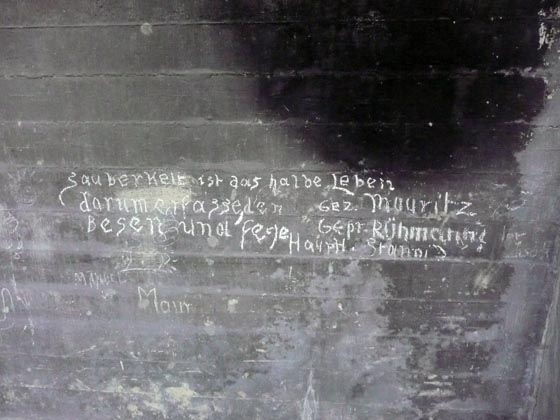 Sauberkeit ist das halbe Leben
darum erfasse den Gez. Mauritz
Besen und fege Gepr. Rühmann
Hauptl.
Maur